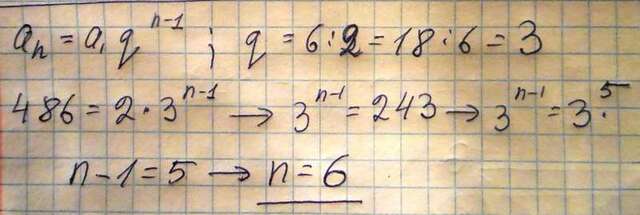 aₙ = a₁ qⁿ⁻¹ ; q = 6:2 = 18:6 = 3
486 = 2·3ⁿ⁻¹ → 3ⁿ⁻¹ = 243 → 3ⁿ⁻¹ = 3⁵.
n-1=5 → n=6